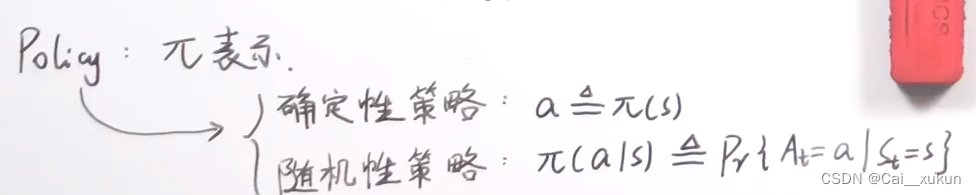 Policy : π 表示.
确定性策略 : a ≜ π(s)
随机性策略 : π(a|s) ≜ Pr{ At=a | St=s }
CSDN @Cai__xukun